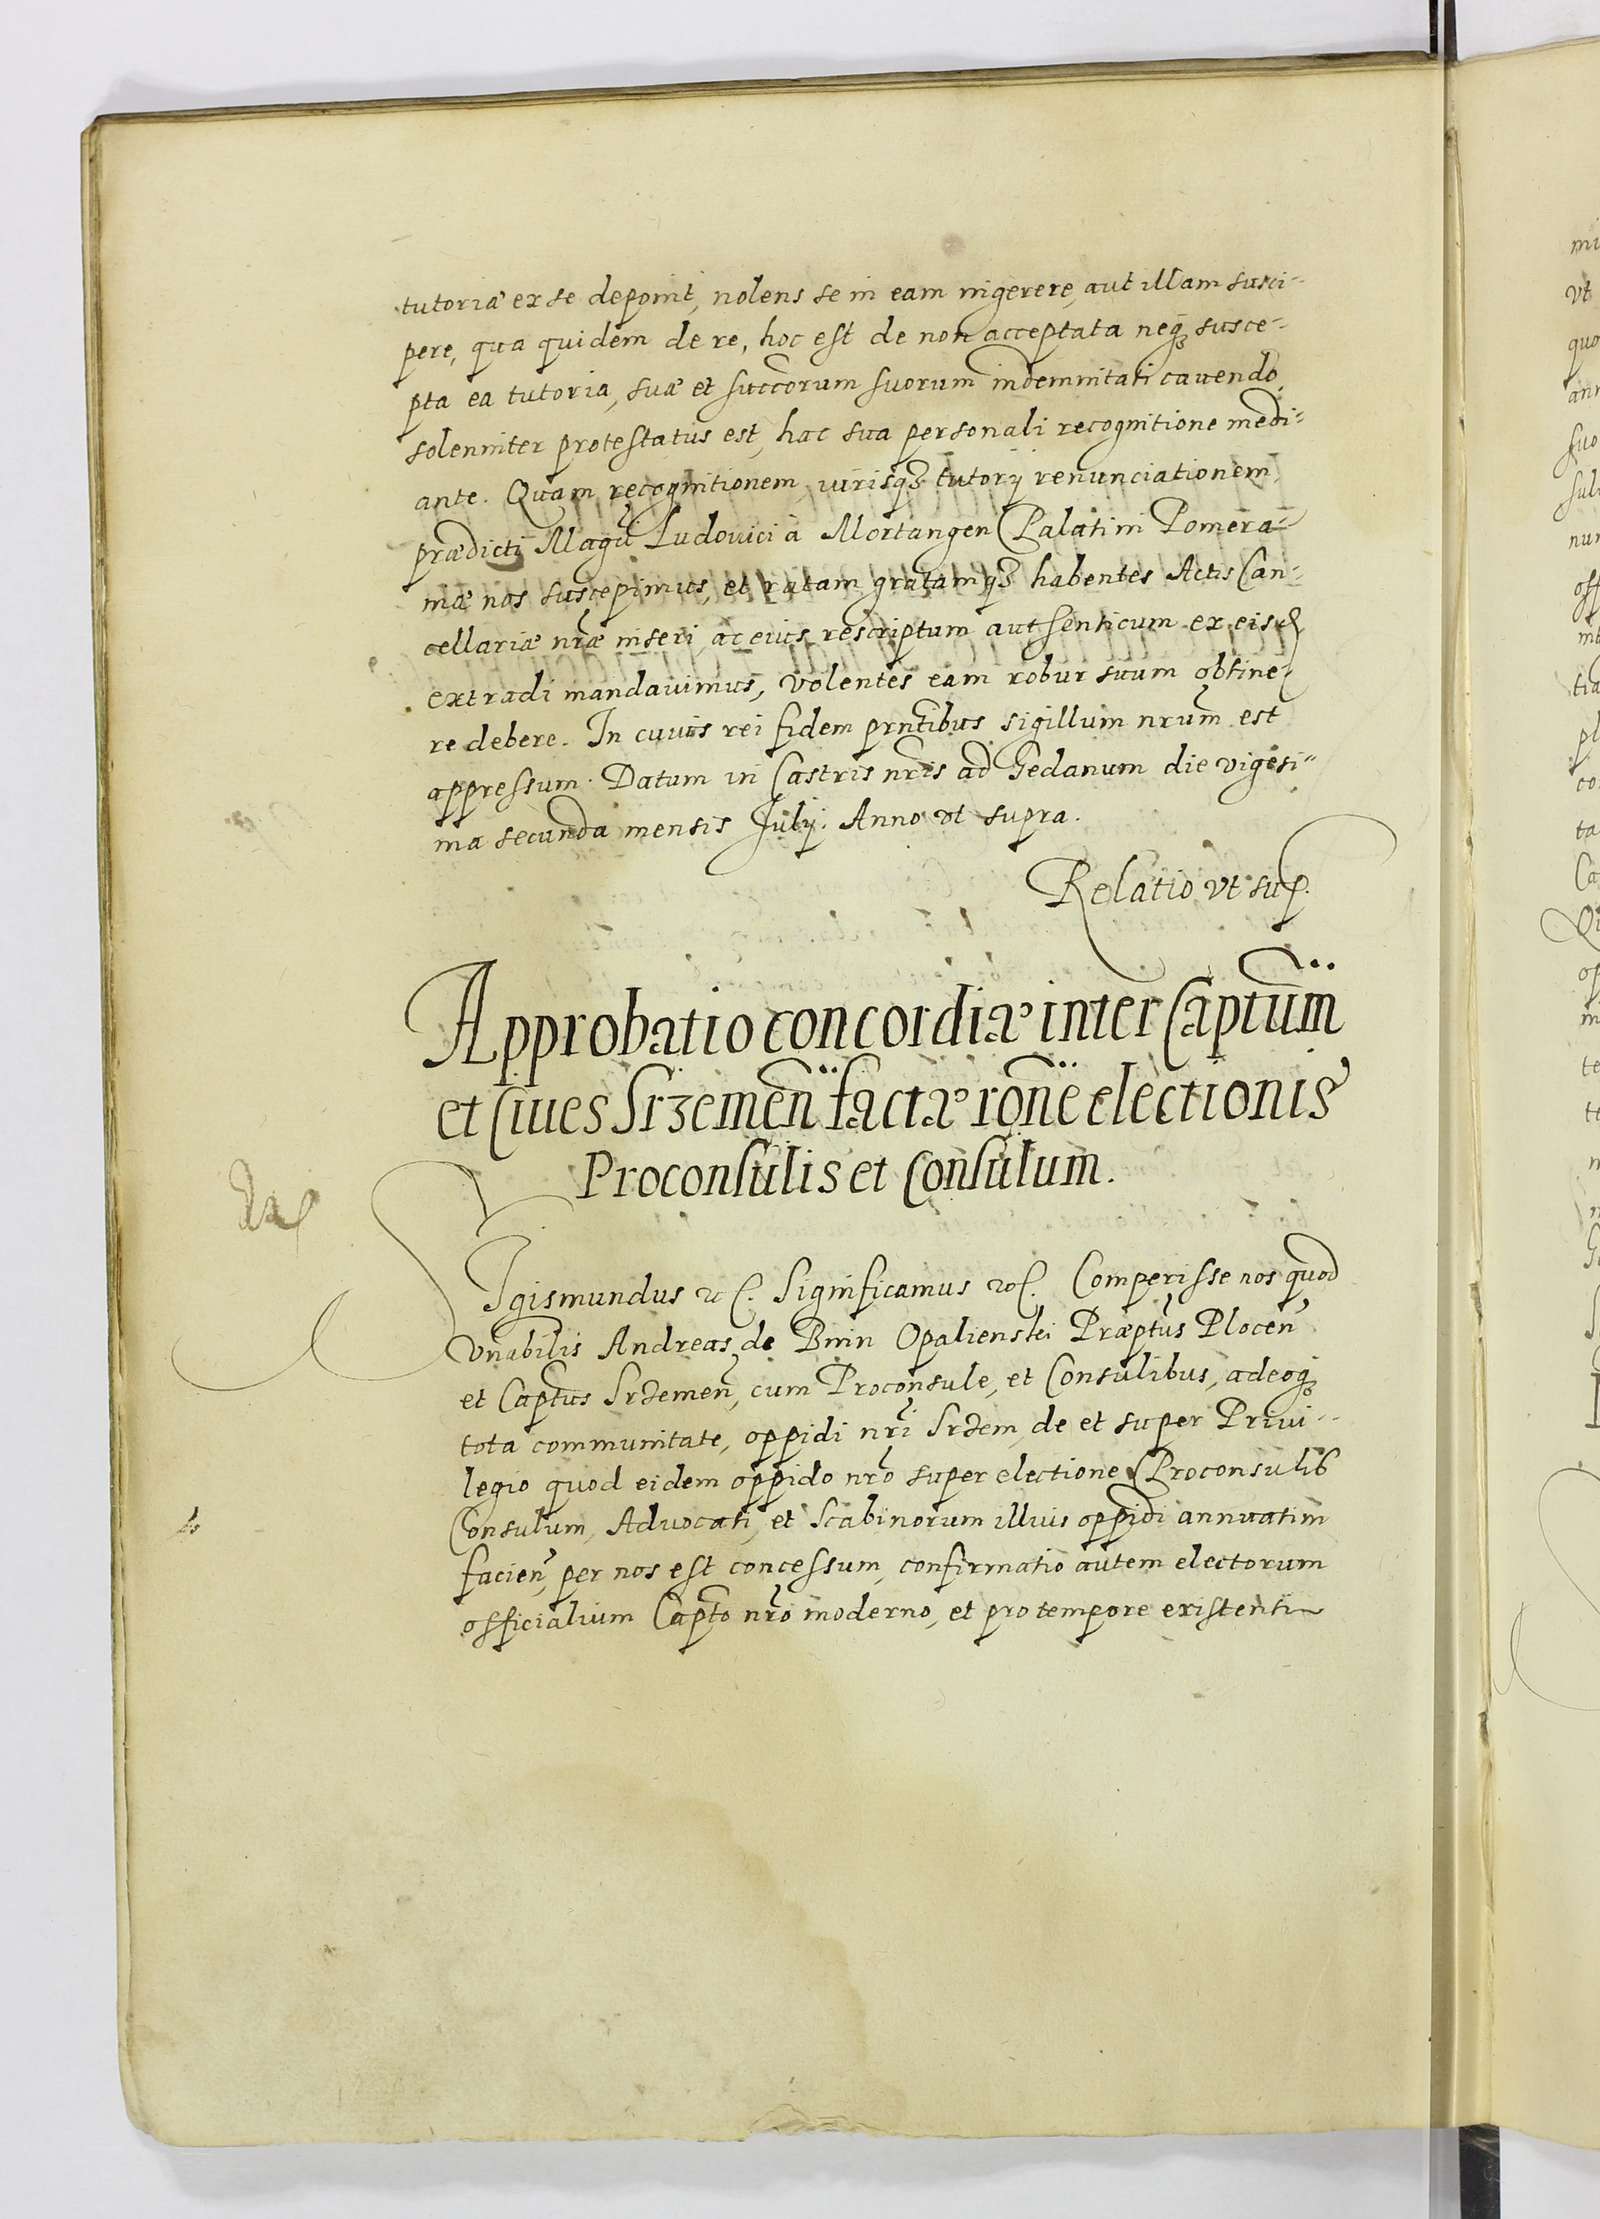 tutoriæ ex se deponit, nolens se in eam ingerere, aut illam susci-
pere, qua quidem de re, hoc est de non acceptata neq3 susce-
pta ea tutoria, suæ et succorum suorum indemnitati cavendo,
solenniter protestatus est, hac sua personali recognitione medi-
ante. Quam recognitionem, iurisq3 tutorij renunciationem,
prædicti Magci Ludouici à Mortangen Palatini Pomera-
niæ nos suscepimus, et ratam gratamq3 habentes Actis Can-
cellariæ nræ inseri, ac eius rescriptum authenticum ex eisd
extradi mandauimus, volentes eam robur suum obtine-
re debere. In cuius rei fidem prntibus sigillum nrum est
appressum. Datum in Castris nris ad Gedanum die vigesi-
ma secunda mensis Julij. Anno vt supra.
Relatio vt sup.
Approbatio concordiæ inter Captum
et Ciues Srzemen factæ rone electionis
Proconsulis et Consulum.
Sigismundus etc. Significamus etc. Comperisse nos quod
Vnabilis Andreas de Bnin Opalienski Præptus Plocen
et Captus Srzemen, cum Proconsule, et Consulibus, adeoq3
tota communitate, oppidi nri Srzem, de et super Priui-
legio quod eidem oppido nro super electione Proconsulis
Consulum, Aduocati, et Scabinorum illius oppidi annuatim
facien, per nos est concessum, confirmatio autem electorum
officialium Capto nro moderno, et pro tempore existenti